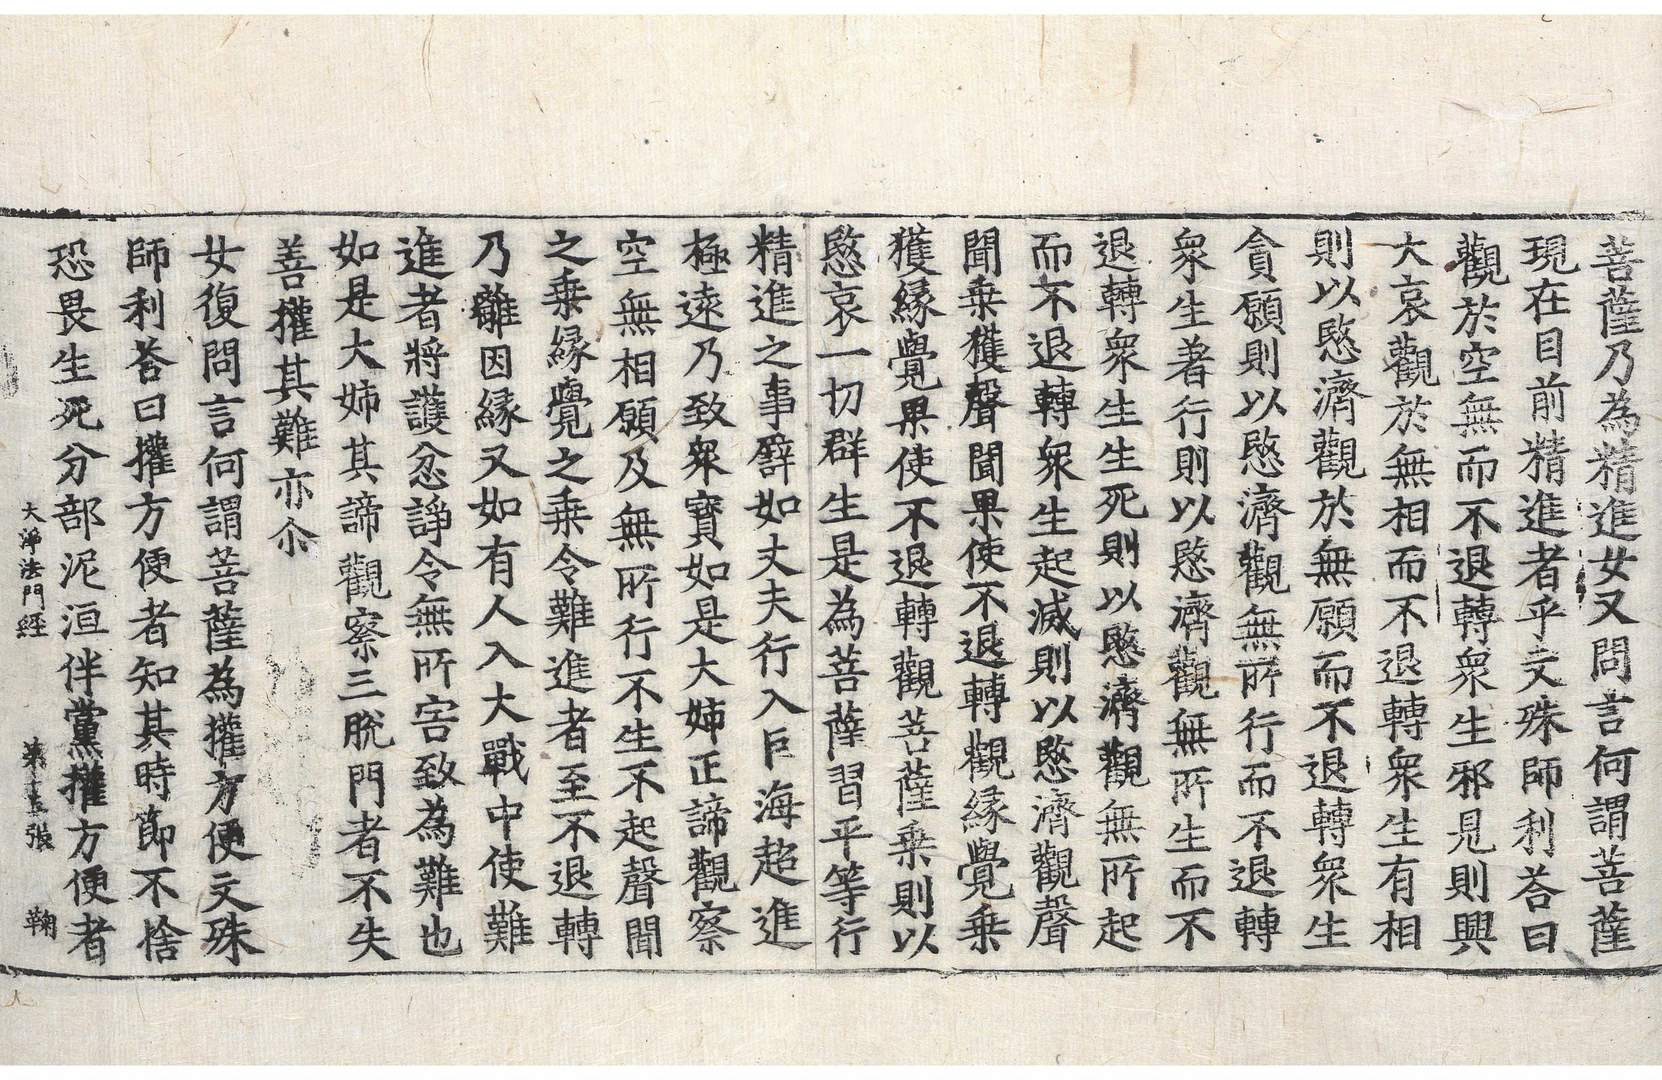 菩薩乃為精進女又問言何謂菩薩
現在目前精進者乎文殊師利荅曰
觀於空無而不退轉衆生邪見則興
大哀觀於無相而不退轉衆生有相
則以愍濟觀於無願而不退轉衆生
貪願則以愍濟觀無所行而不退轉
衆生著行則以愍濟觀無所生而不
退轉衆生生死則以愍濟觀無所起
而不退轉衆生起滅則以愍濟觀聲
聞乗獲聲聞果使不退轉觀緣覺乗
獲緣覺果使不退轉觀菩薩乗則以
愍哀一切群生是為菩薩習平等行
精進之事譬如丈夫行入巨海超進
極遠乃致衆寶如是大姉正諦觀察
空無相願及無所行不生不起聲聞
之乗緣覺之乗令難進者至不退轉
乃離因緣又如有人入大戰中使難
進者將護忿諍令無所害致為難也
如是大姉其諦觀察三脫門者不失
善權其難亦尒
女復問言何謂菩薩為權方便文殊
師利荅曰權方便者知其時節不捨
恐畏生死分部泥洹伴黨權方便者
大淨法門經 第 張 鞠